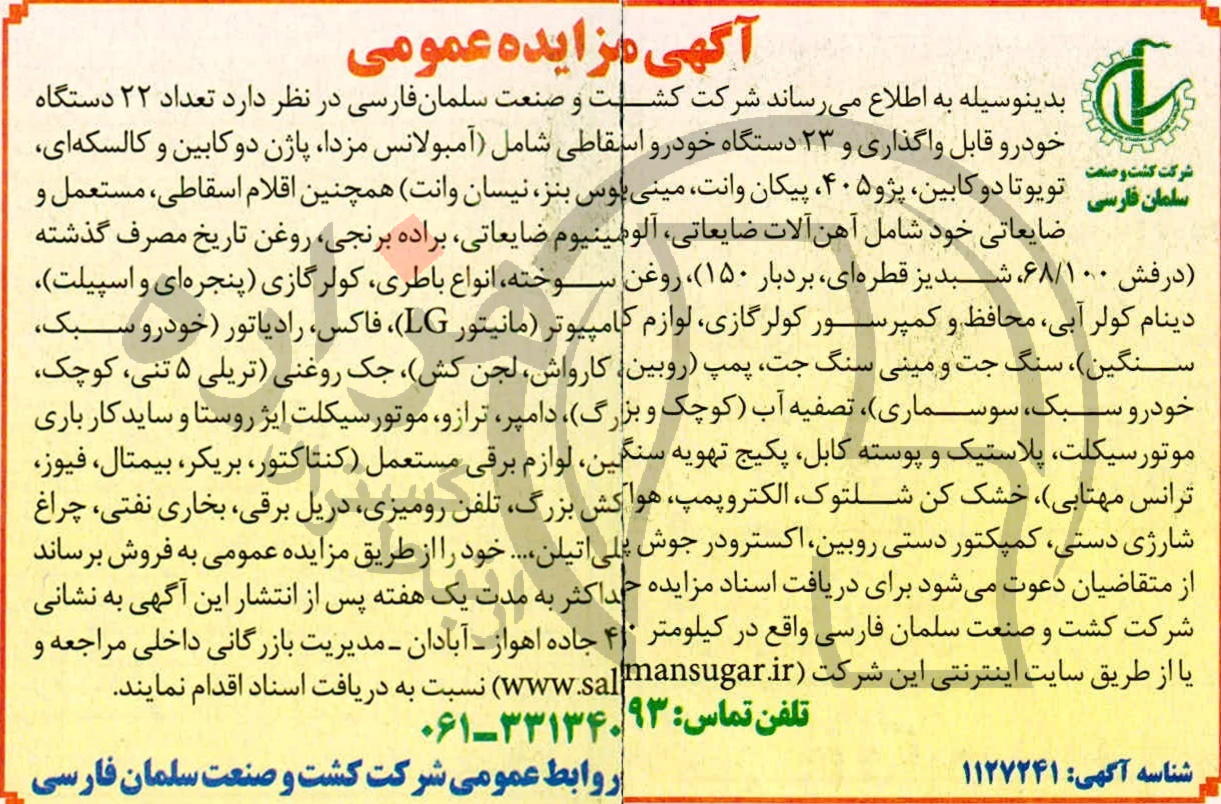 آگهی مزایده عمومی
شرکت کشت و صنعت
سلمان فارسی
بدینوسیله به اطلاع می‌رساند شرکت کشت و صنعت سلمان‌فارسی در نظر دارد تعداد ۲۲ دستگاه
خودرو قابل واگذاری و ۲۳ دستگاه خودرو اسقاطی شامل (آمبولانس مزدا، پاژن دوکابین و کالسکه‌ای،
تویوتا دوکابین، پژو۴۰۵، پیکان وانت، مینی‌بوس بنز، نیسان وانت) همچنین اقلام اسقاطی، مستعمل و
ضایعاتی خود شامل آهن‌آلات ضایعاتی، آلومینیوم ضایعاتی، براده برنجی، روغن تاریخ مصرف گذشته
(درفش ۶۸/۱۰۰، شبدیز قطره‌ای، بردبار ۱۵۰)، روغن سوخته، انواع باطری، کولر گازی (پنجره‌ای و اسپیلت)،
دینام کولر آبی، محافظ و کمپرسور کولر گازی، لوازم کامپیوتر (مانیتور LG)، فاکس، رادیاتور (خودرو سبک،
سنگین)، سنگ جت و مینی سنگ جت، پمپ (روبین، کارواش، لجن کش)، جک روغنی (تریلی ۵ تنی، کوچک،
خودرو سبک، سوسماری)، تصفیه آب (کوچک و بزرگ)، دامپر، ترازو، موتورسیکلت ایژ روستا و سایدکار باری
موتورسیکلت، پلاستیک و پوسته کابل، پکیج تهویه سنگین، لوازم برقی مستعمل (کنتاکتور، بریکر، بیمتال، فیوز،
ترانس مهتابی)، خشک کن شلتوک، الکتروپمپ، هواکش بزرگ، تلفن رومیزی، دریل برقی، بخاری نفتی، چراغ
شارژی دستی، کمپکتور دستی روبین، اکسترودر جوش پلی‌اتیلن،... خود را از طریق مزایده عمومی به فروش برساند
از متقاضیان دعوت می‌شود برای دریافت اسناد مزایده حداکثر به مدت یک هفته پس از انتشار این آگهی به نشانی
شرکت کشت و صنعت سلمان فارسی واقع در کیلومتر ۴۰ جاده اهواز ـ آبادان ـ مدیریت بازرگانی داخلی مراجعه و
یا از طریق سایت اینترنتی این شرکت (www.salmansugar.ir) نسبت به دریافت اسناد اقدام نمایند.
تلفن تماس: ۰۶۱-۳۳۱۳۴۰۹۳
شناسه آگهی: ۱۱۲۷۲۴۱
روابط عمومی شرکت کشت و صنعت سلمان فارسی
هزاره
ارتباط گستران